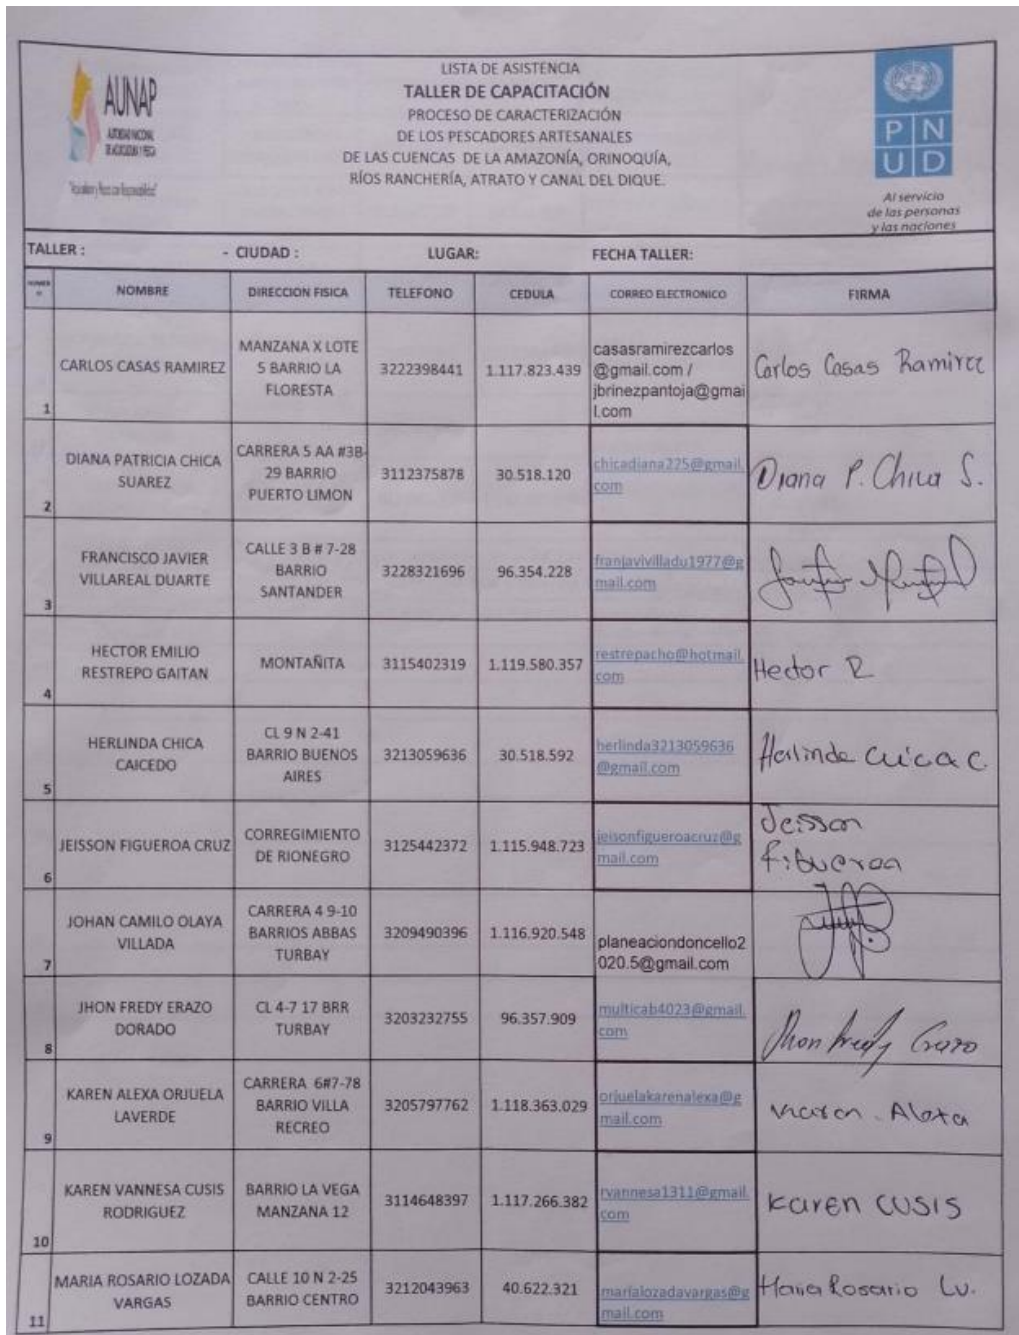 AUNAP
AUTORIDAD NACIONAL
DE ACUICULTURA Y PESCA
LISTA DE ASISTENCIA
TALLER DE CAPACITACIÓN
PROCESO DE CARACTERIZACIÓN
DE LOS PESCADORES ARTESANALES
DE LAS CUENCAS DE LA AMAZONÍA, ORINOQUÍA,
RÍOS RANCHERÍA, ATRATO Y CANAL DEL DIQUE.
P N
U D
Al servicio
de las personas
y las naciones
TALLER : - CIUDAD : LUGAR: FECHA TALLER:
NOMBRE DIRECCION FISICA TELEFONO CEDULA CORREO ELECTRONICO FIRMA
1
CARLOS CASAS RAMIREZ
MANZANA X LOTE
5 BARRIO LA
FLORESTA
3222398441
1.117.823.439
casasramirezcarlos
@gmail.com /
jbrinezpantoja@gmai
l.com
Carlos Casas Ramirez
2
DIANA PATRICIA CHICA
SUAREZ
CARRERA 5 AA #3B-
29 BARRIO
PUERTO LIMON
3112375878
30.518.120
chicadiana225@gmail.
com
Diana P. Chica S.
3
FRANCISCO JAVIER
VILLAREAL DUARTE
CALLE 3 B # 7-28
BARRIO
SANTANDER
3228321696
96.354.228
franjavivilladu1977@g
mail.com
4
HECTOR EMILIO
RESTREPO GAITAN
MONTAÑITA
3115402319
1.119.580.357
restrepacho@hotmail.
com
Hector R
5
HERLINDA CHICA
CAICEDO
CL 9 N 2-41
BARRIO BUENOS
AIRES
3213059636
30.518.592
herlinda3213059636
@gmail.com
Herlinda Chica C.
6
JEISSON FIGUEROA CRUZ
CORREGIMIENTO
DE RIONEGRO
3125442372
1.115.948.723
jeisonfigueroacruz@g
mail.com
Jeisson
Figueroa
7
JOHAN CAMILO OLAYA
VILLADA
CARRERA 4 9-10
BARRIOS ABBAS
TURBAY
3209490396
1.116.920.548
planeaciondoncello2
020.5@gmail.com
8
JHON FREDY ERAZO
DORADO
CL 4-7 17 BRR
TURBAY
3203232755
96.357.909
multicab4023@gmail.
com
Jhon Fredy Erazo
9
KAREN ALEXA ORJUELA
LAVERDE
CARRERA 6#7-78
BARRIO VILLA
RECREO
3205797762
1.118.363.029
orjuelakarenalexa@g
mail.com
Karen Alexa
10
KAREN VANNESA CUSIS
RODRIGUEZ
BARRIO LA VEGA
MANZANA 12
3114648397
1.117.266.382
rvannesa1311@gmail.
com
Karen CUSIS
11
MARIA ROSARIO LOZADA
VARGAS
CALLE 10 N 2-25
BARRIO CENTRO
3212043963
40.622.321
marialozadavargas@g
mail.com
Maria Rosario Lv.